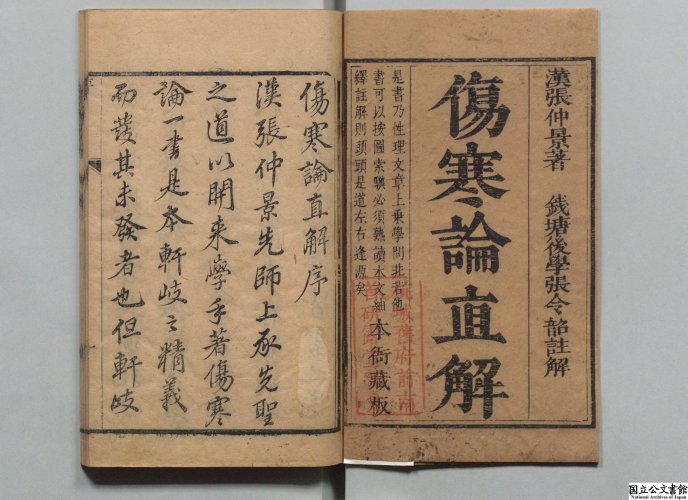 漢張仲景著 錢塘後學張令韶註解
傷寒論直解
是書乃性理文章上乘學問非若他
書可以按圖索驥必須熟讀本文細
繹註解則頭頭是道左右逢源矣
本衙藏板
傷寒論直解序
漢張仲景先師上承先聖
之道以開來學手著傷寒
論一書是本軒岐之精義
而發其未發者也但軒岐
国立公文書館
National Archives of Japan